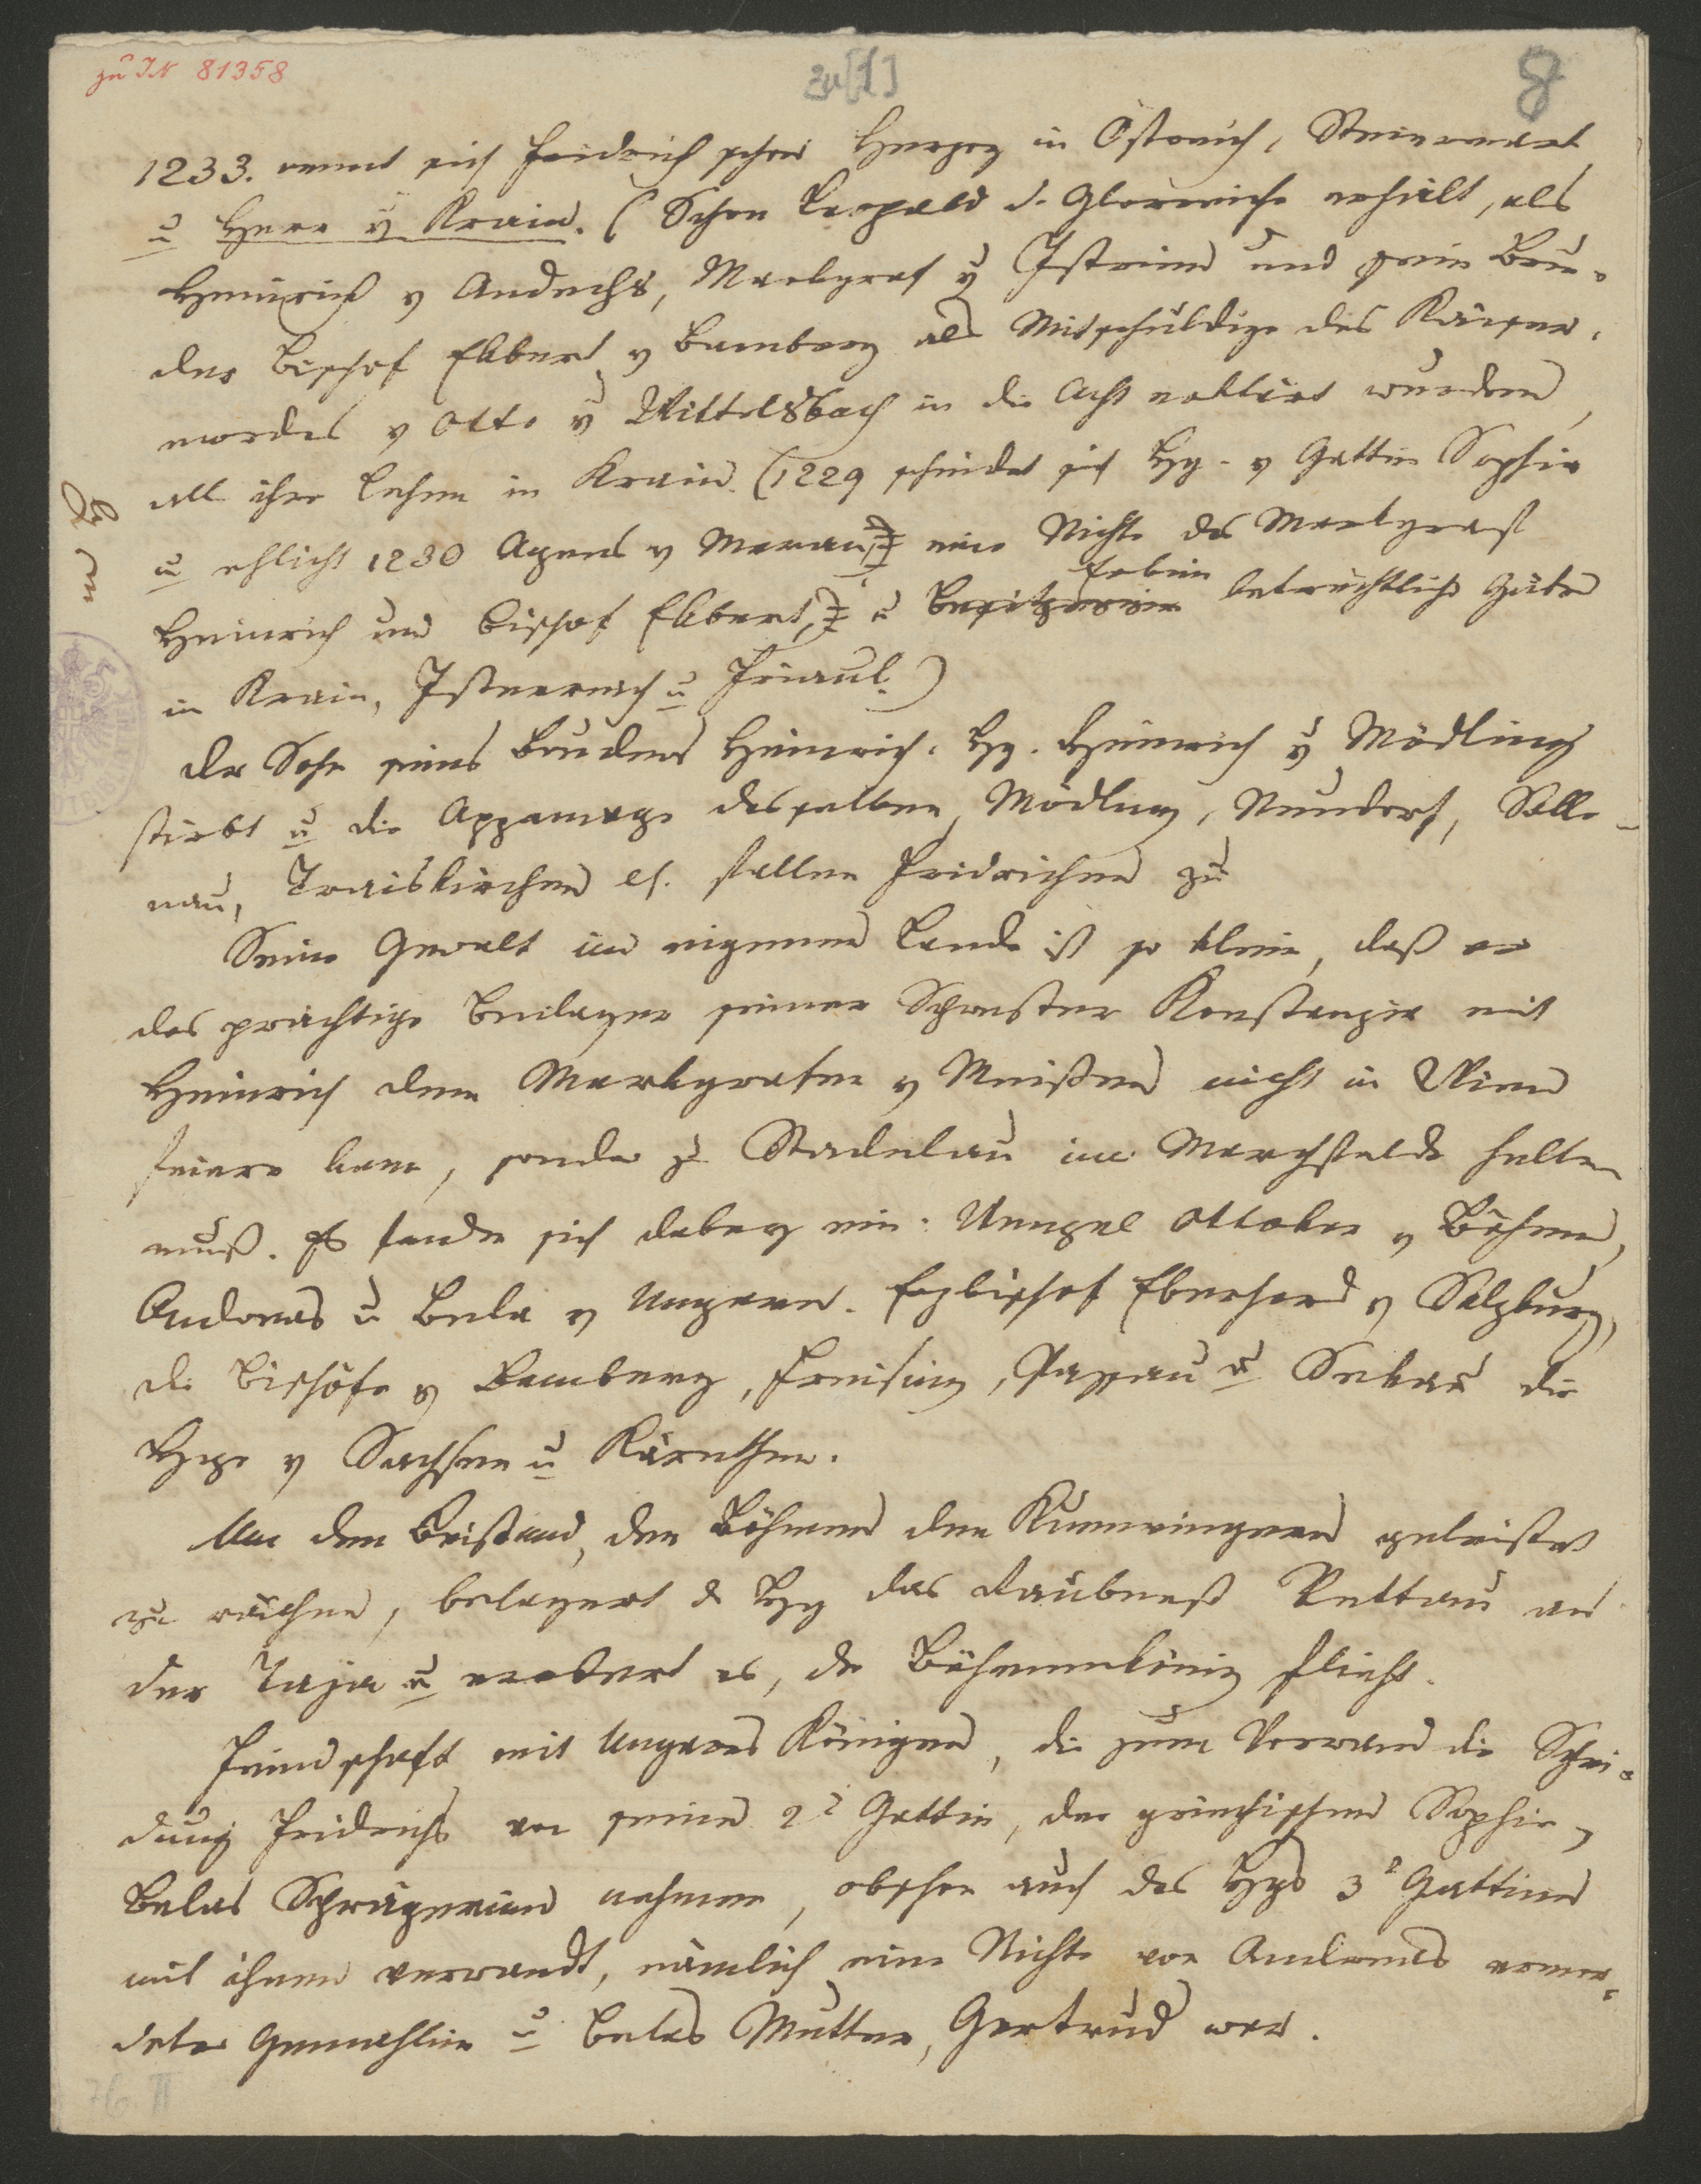 zu IN 81358
zu [1]
8
1233. nennt sich Friedrich schon Herzog in Östreich, Steiermark
u Herr v Krain. (Schon Leopold d. Glorreiche erhielt, als
Heinrich v Andechs, Markgraf v Istrien und sein Bru-
der Bischof Ekbert v Bamberg als Mitschuldige des Kaiser-
mordes v Otto v Wittelsbach in die Acht erklärt wurden,
all ihre Lehen in Krain. (1229 scheidet sich Hzg. v Gattin Sophie
u ehlicht 1230 Agnes v Meran, eine Nichte des Markgraf
Erbin
Heinrich und Bischof Ekbert, u Besitzerin beträchtlicher Güter
in Krain, Istereich u Friaul.)
Der Sohn seines Bruders Heinrich. Hzg. Heinrich v Mödling
stirbt u die Appanage desselben, Mödling, Neudorf, Solle-
nau, Traiskirchen etc. fallen Fridrichen zu
Seine Gewalt im eigenen Lande ist so klein, daß er
das prächtige Beilager seiner Schwester Konstanzia mit
Heinrich dem Markgrafen v Meißen nicht in Wien
feiern kann, sondern zu Stadelau im Marchfelde halten
muß. Es fanden sich dabey ein: Wenzel Ottokar v Böhmen,
Andreas u Bela v Ungarn. Erzbischof Eberhard v Salzburg,
die Bischöfe v Bamberg, Freising, Passau u Sekau die
Hzge v Sachsen u Kärnthen.
Um den Beistand, den Böhmen den Kuenringern geleistet
zu rächen, belagert d Hzg das Raubnest Vettau an
der Taja u erobert es, der Böhmenkönig flieht.
Feindschaft mit Ungarns Königen, die zum Vorwand die Schei-
dung Fridrichs von seiner 2t Gattin, der griechischen Sophie,
Belas Schwägerinn nahmen, obschon auch des Hzgs 3t Gattinn
mit ihnen verwandt, nämlich eine Nichte von Andreas ermor-
deter Gemahlin u Belas Mutter, Gertrud war.
76 II